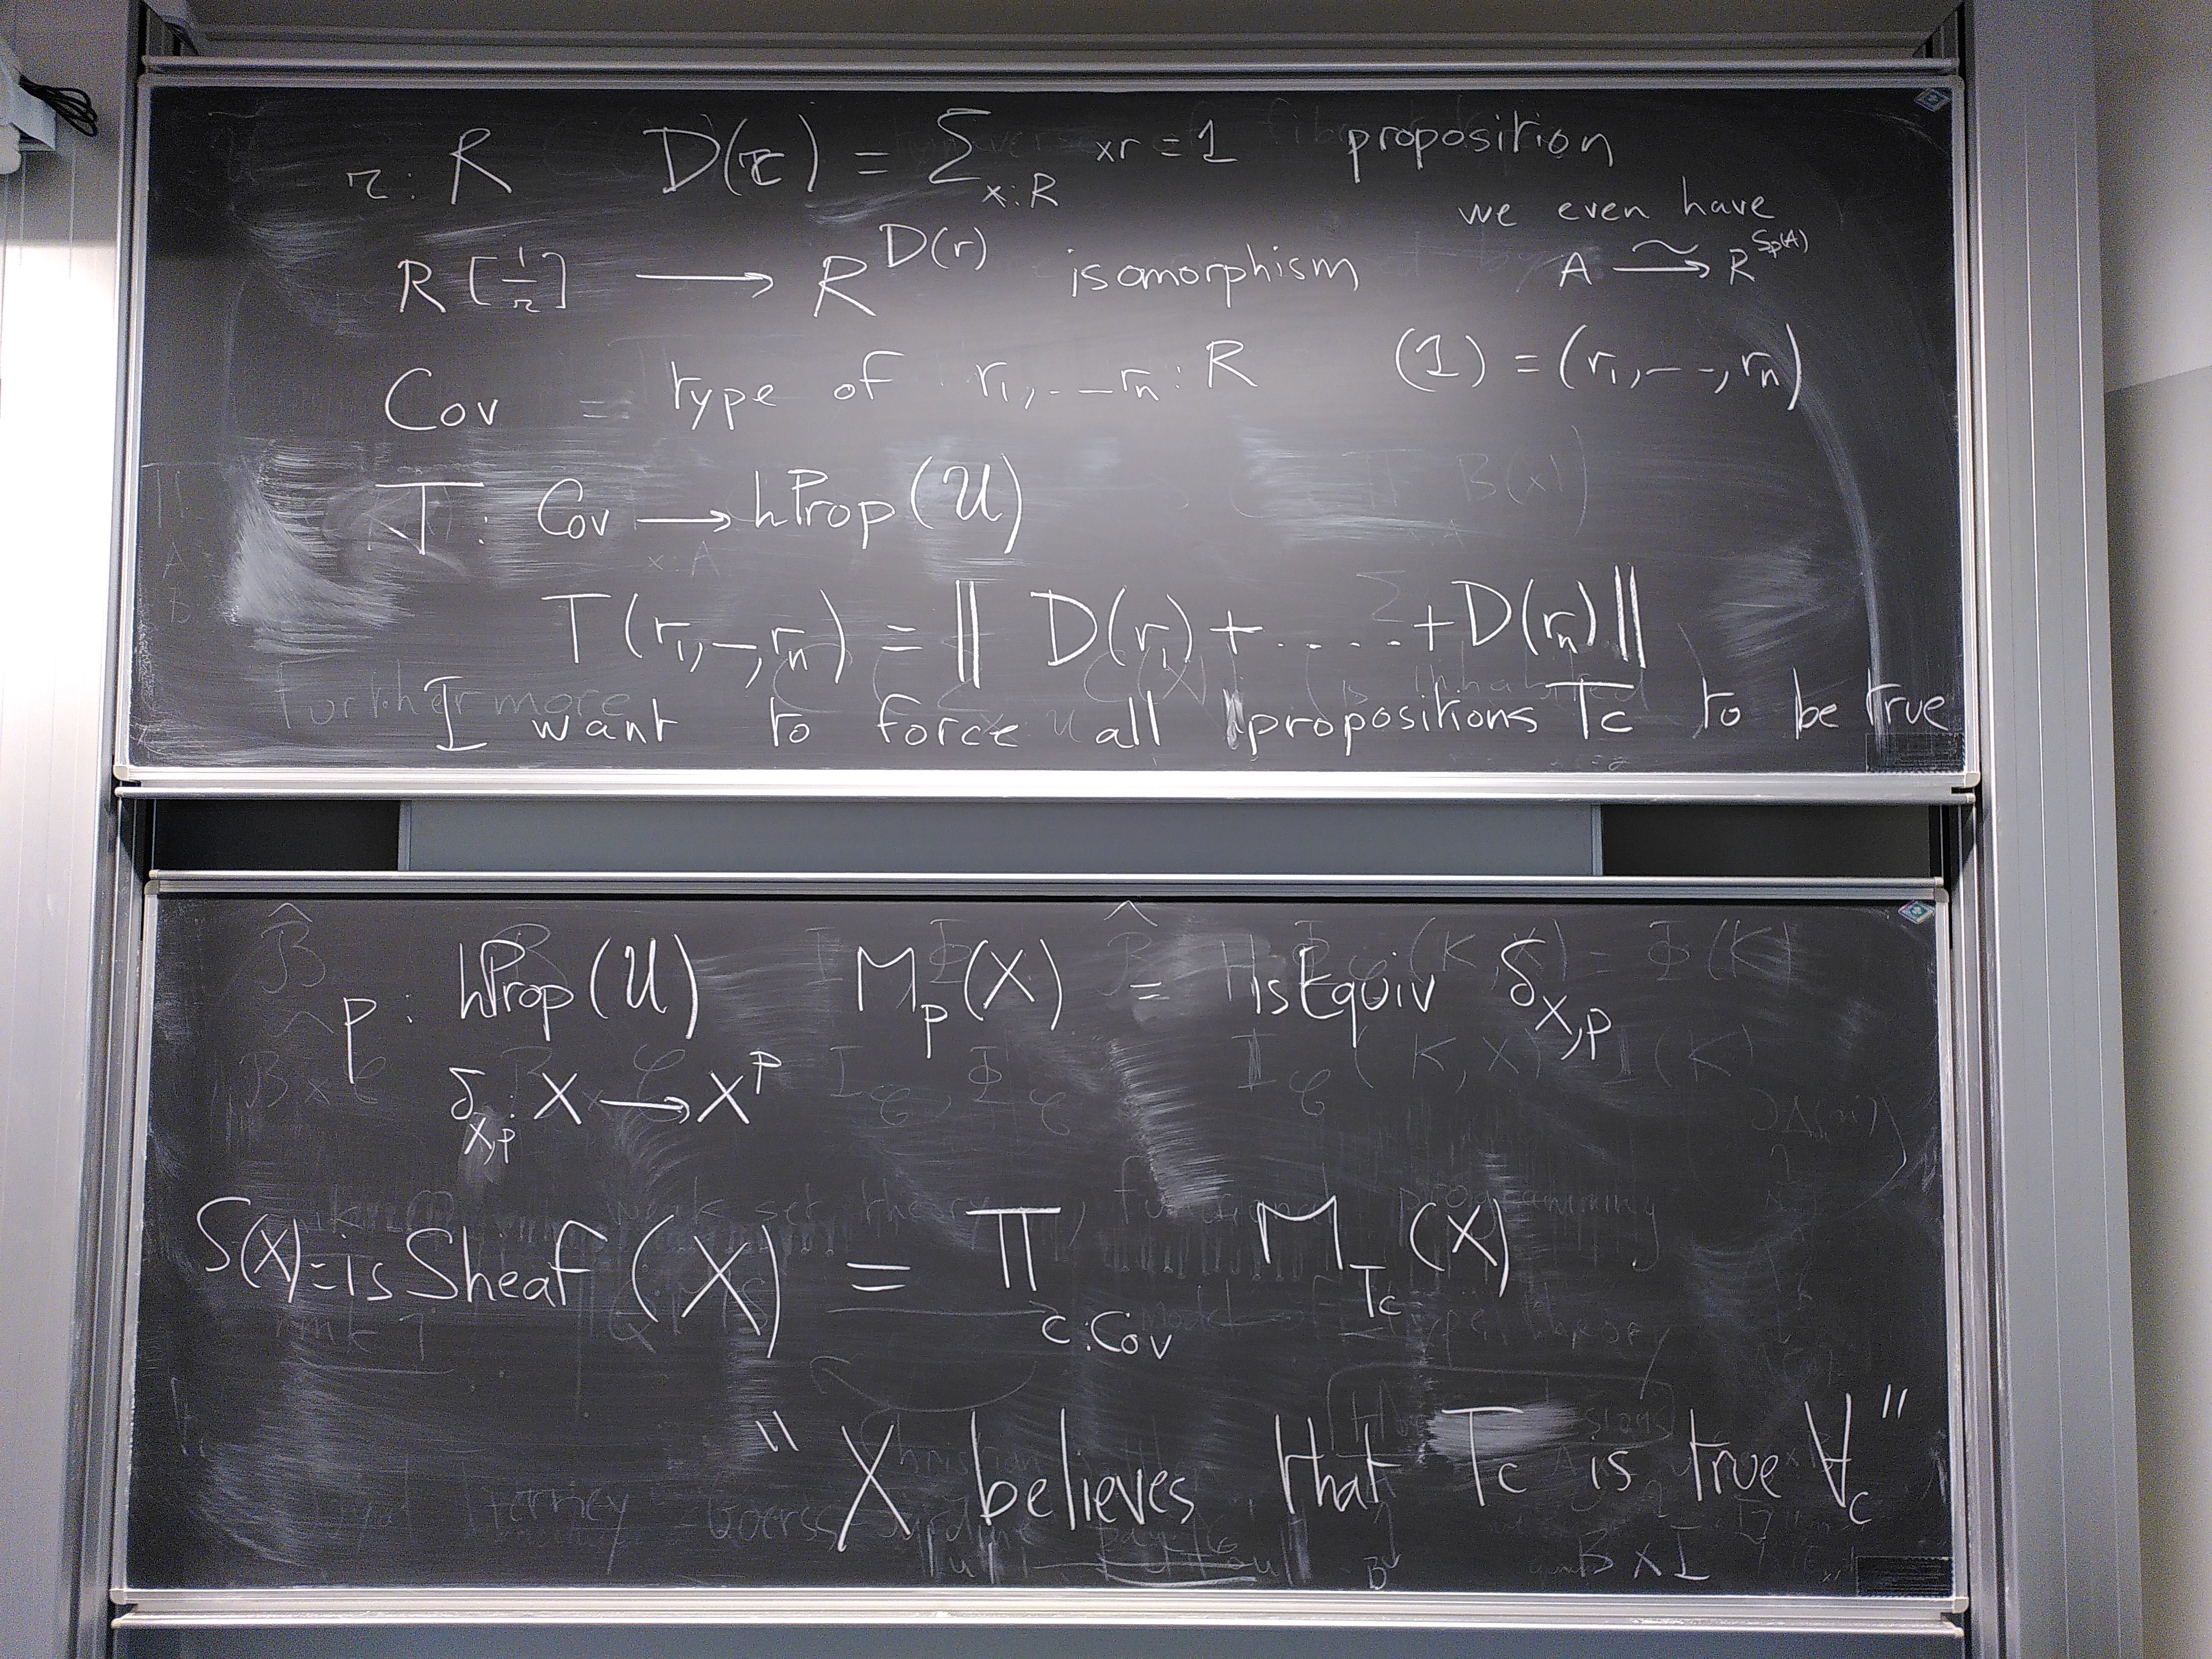 r : R D(r) = Σ_{x:R} xr = 1 proposition
we even have
R[1/r] ⟶ R^{D(r)} isomorphism A ⥲ R^{Sp(A)}
Cov = type of r₁, ... rₙ : R (1) = (r₁, - -, rₙ)
T : Cov ⟶ hProp(𝒰)
T(r₁, -, rₙ) = ‖ D(r₁) + ..... + D(rₙ) ‖
I want to force all propositions T_c to be true
p : hProp(𝒰) M_p(X) = isEquiv δ_{X,p}
δ_{X,p} : X ⟶ X^p
S(X) = isSheaf(X) = Π_{c:Cov} M_{T_c}(X)
"X believes that T_c is true ∀_c"